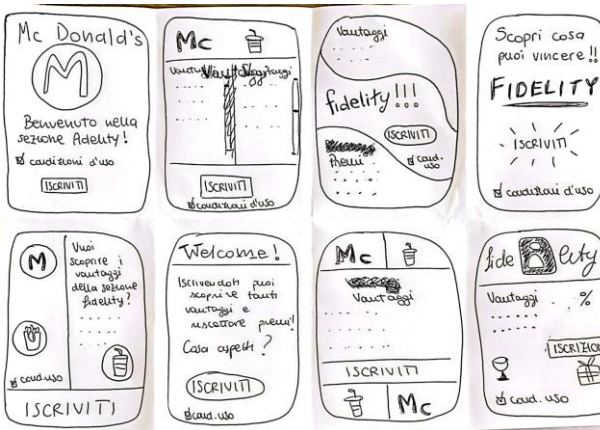 Mc Donald's
M
Benvenuto nella
sezione Fidelity!
condizioni d'uso
ISCRIVITI
Mc
Vantaggi
ISCRIVITI
condizioni d'uso
Vantaggi
fidelity!!!
ISCRIVITI
Premi
cond.
uso
Scopri cosa
puoi vincere!!
FIDELITY
ISCRIVITI
condizioni d'uso
M
Vuoi
scoprire i
vantaggi
della sezione
fidelity?
cond.uso
ISCRIVITI
Welcome!
Iscrivendoti puoi
scoprire tanti
vantaggi e
riscattare premi!
Cosa aspetti?
ISCRIVITI
cond. uso
Mc
Vantaggi
ISCRIVITI
Mc
fide lity
Vantaggi %
ISCRIZION
cond. uso